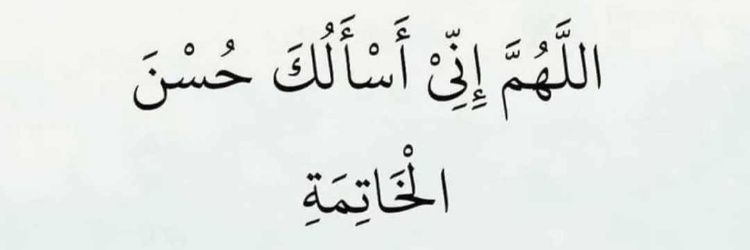 اللَّهُمَّ إِنِّيْ أَسْأَلُكَ حُسْنَ
الْخَاتِمَةِ